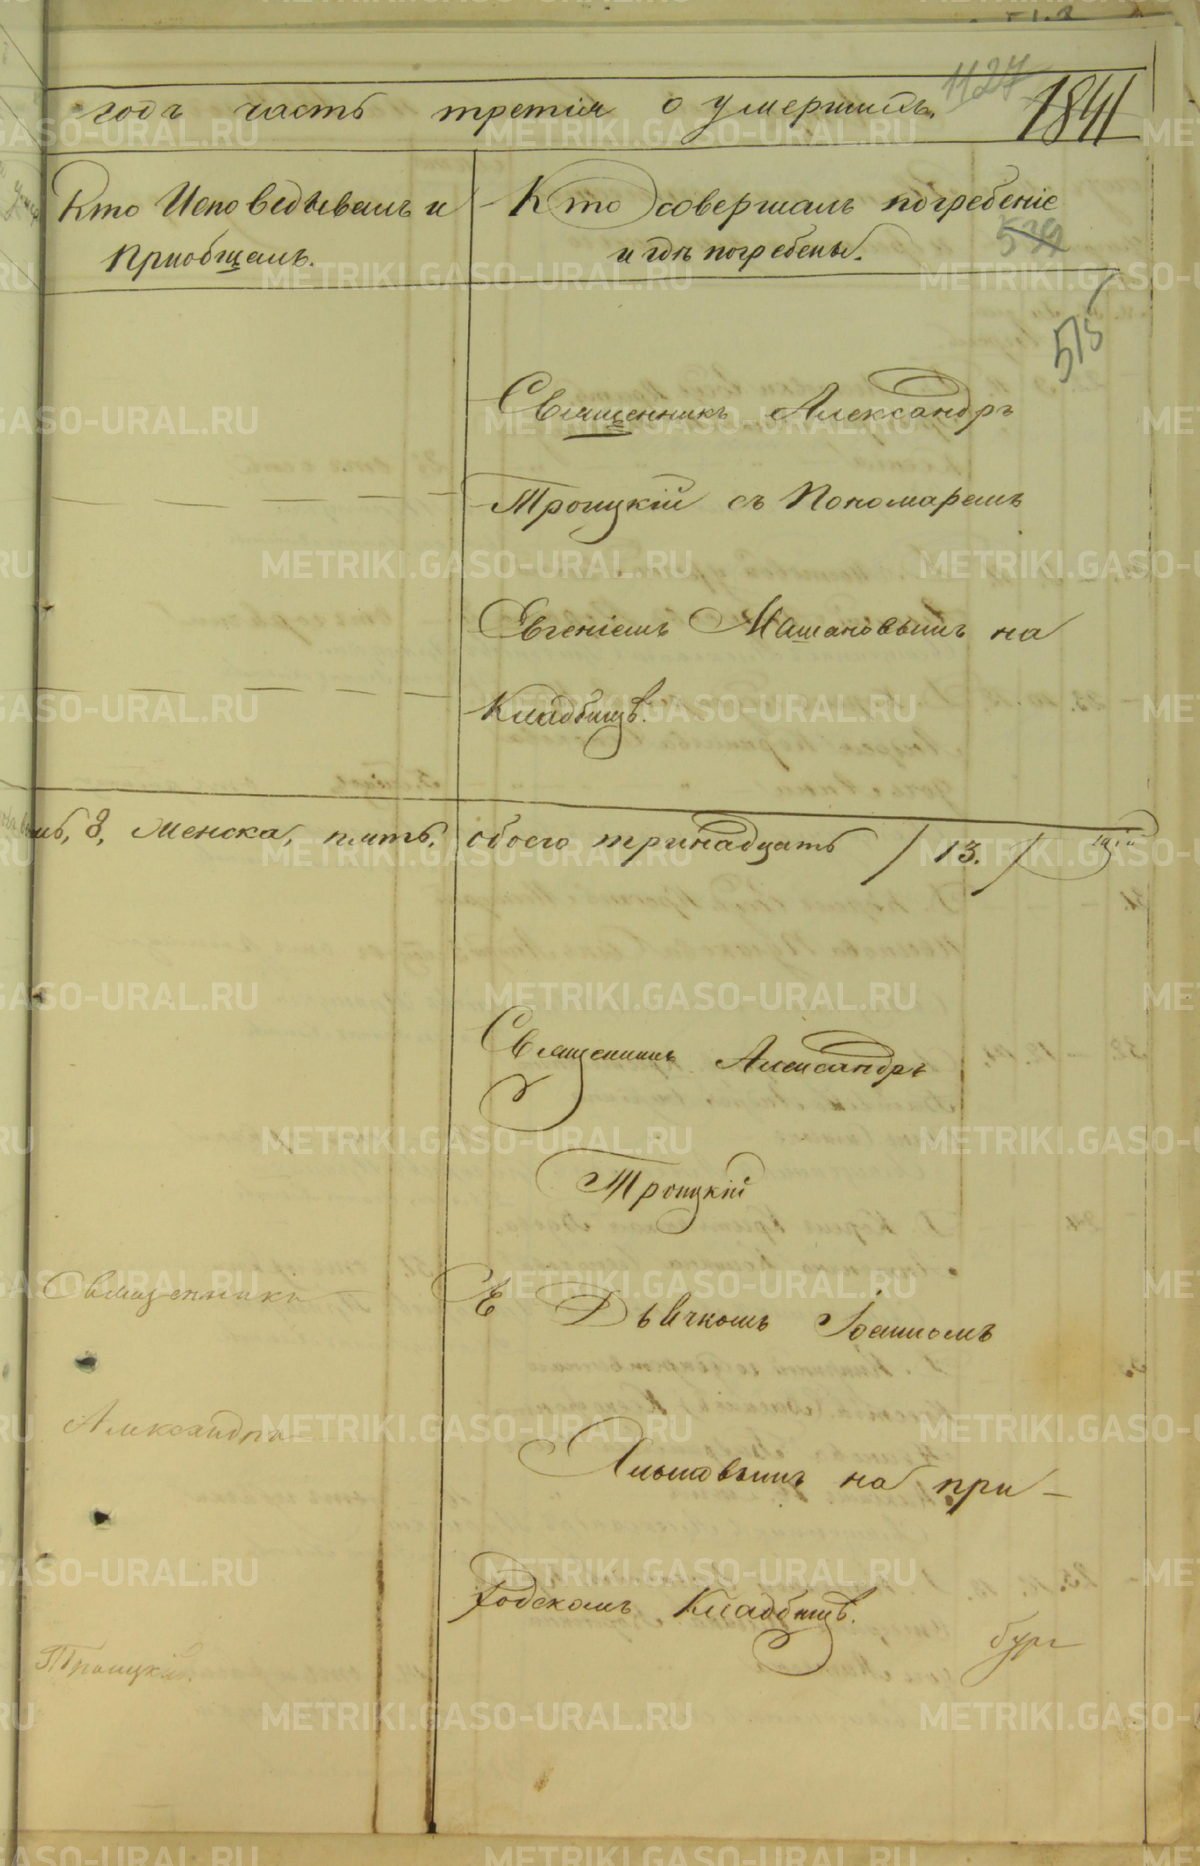 1127
годъ часть третія о умершихъ.
1841
Кто Исповедывалъ и
Приобщалъ.
Кто совершалъ погребеніе
и гдѣ погребены.
539
515
Священникъ Александръ
Троицкій съ Пономаремъ
Евгеніемъ Машановымъ на
Кладбищѣ.
8, женска, пять, обоего тринадцать / 13. /
Священникъ Александръ
Троицкій
Священникъ
Дьячкомъ Іоанномъ
Александръ
на при-
ходскомъ Кладбищѣ.
Троицкій.
METRIKI.GASO-URAL.RU